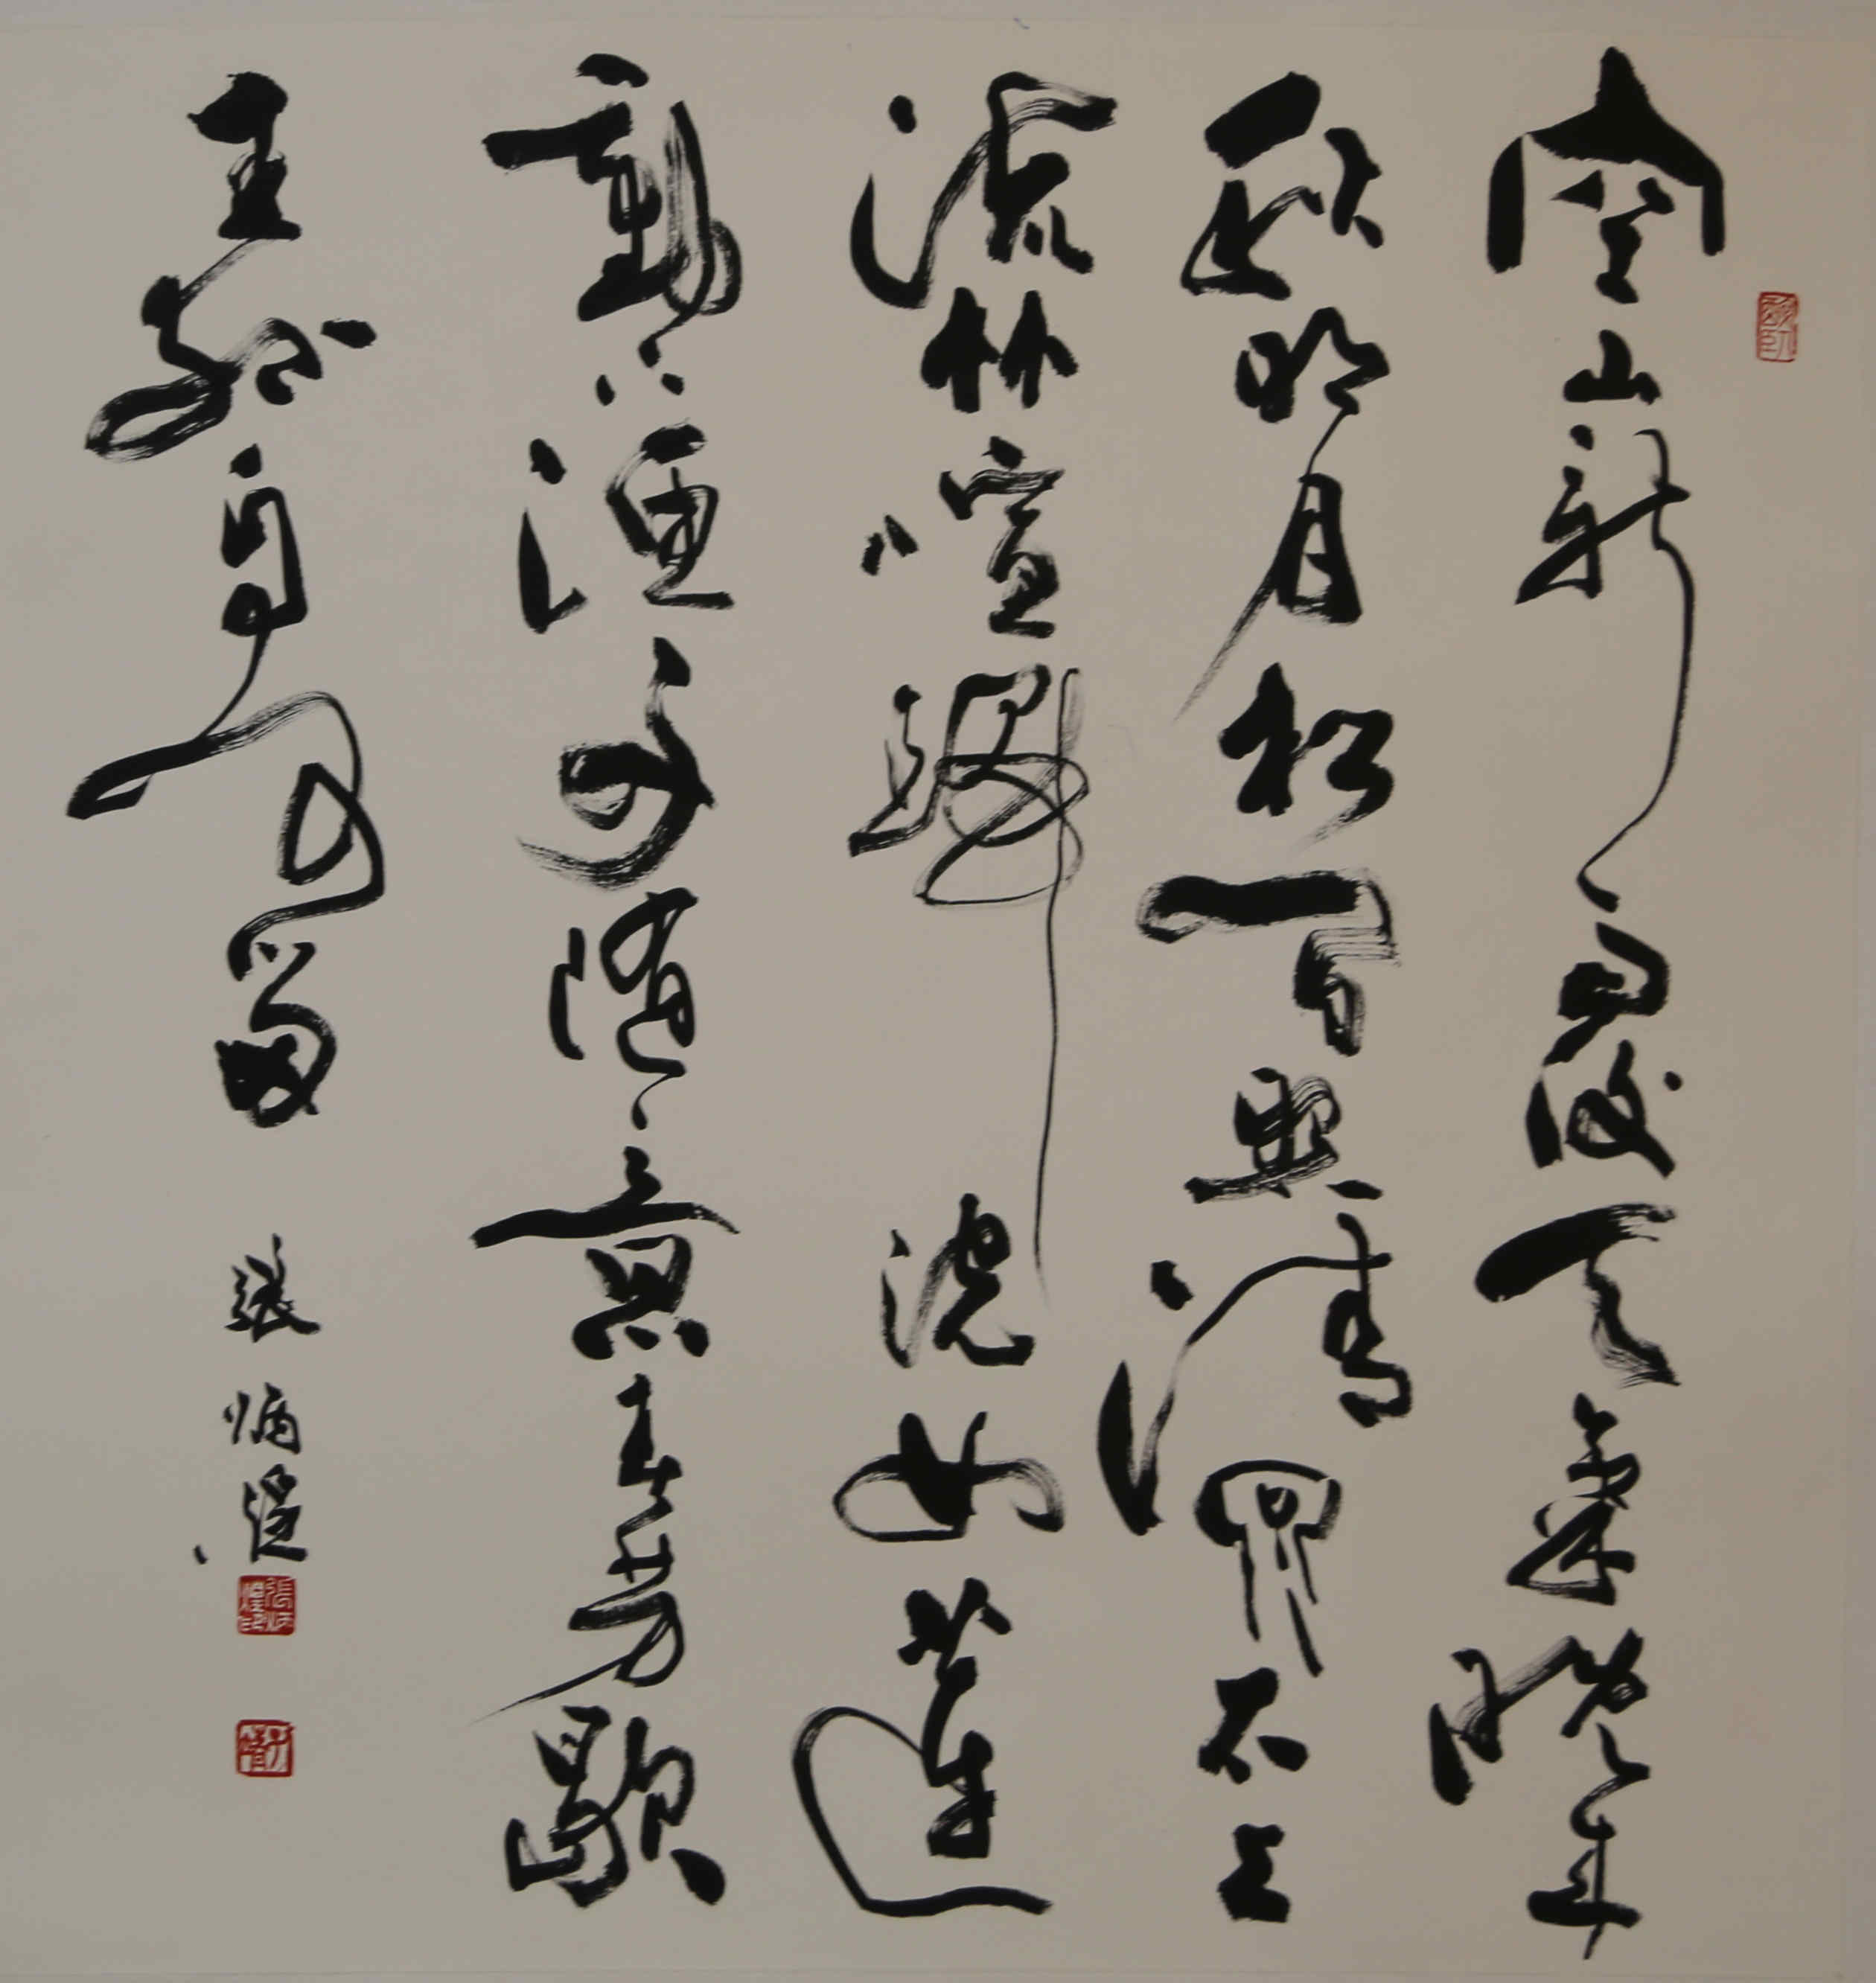 空山新雨後天氣晚来
秋明月松間照清泉石上
流竹喧歸浣女蓮
動下漁舟隨意春芳歇
王孫自可留 張炳煌
張炳煌印